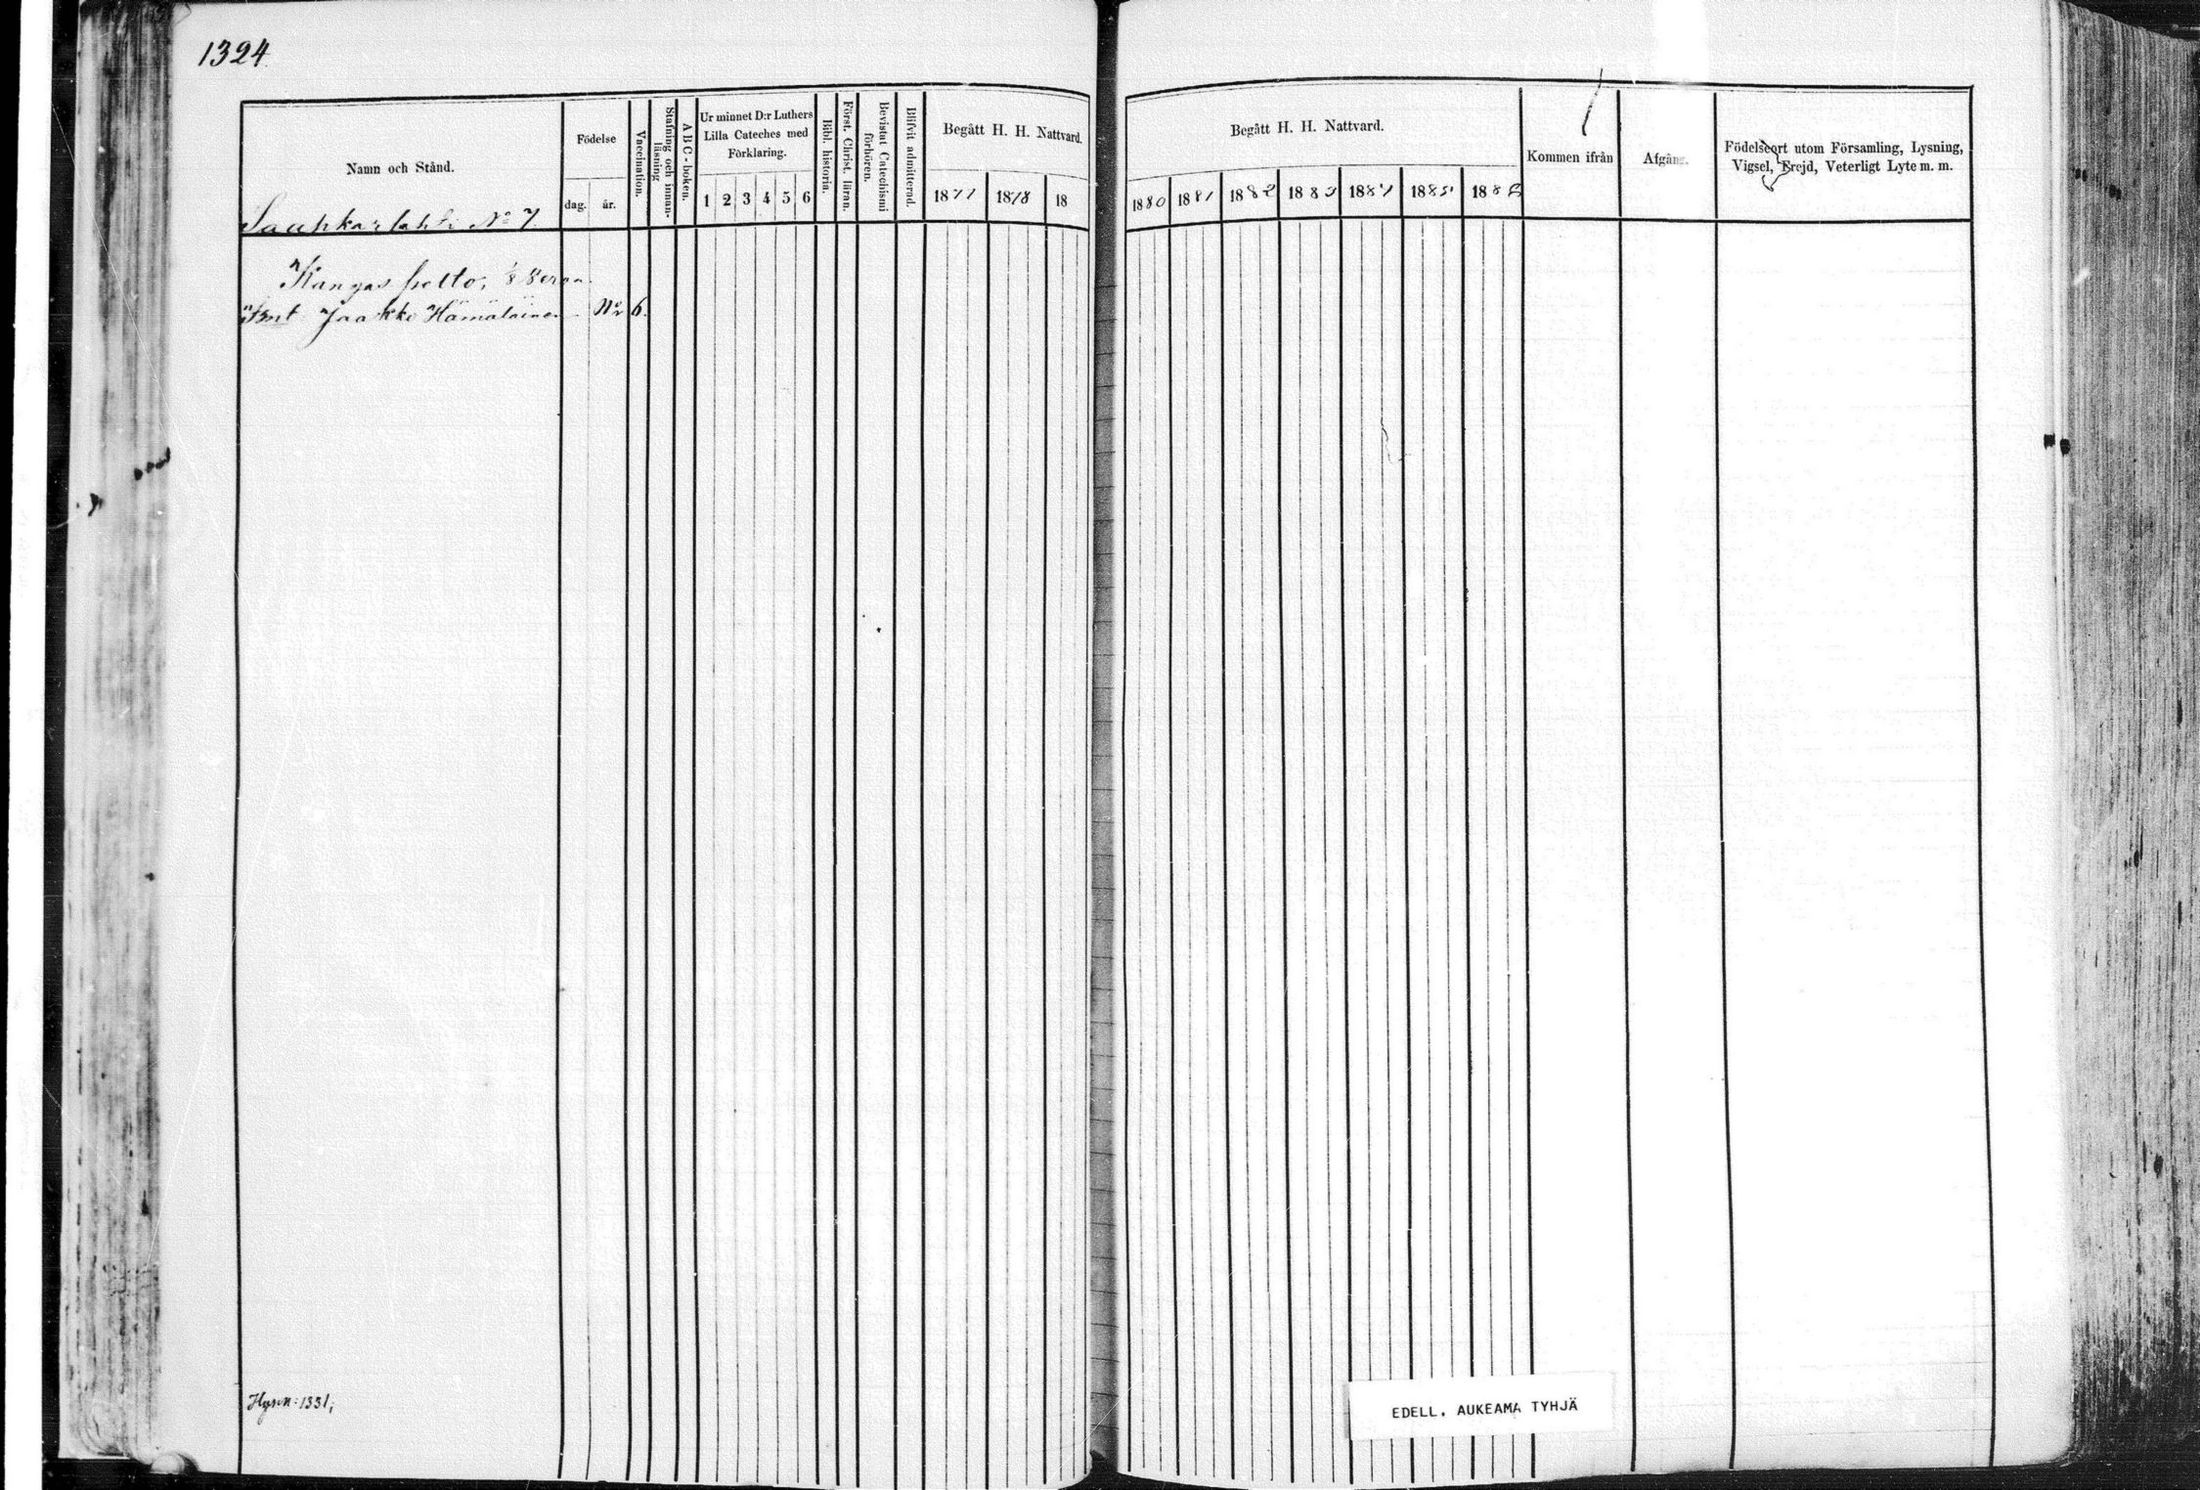 1324
Namn och Stånd.
Födelse
dag.
år.
Vaccination.
Stafning och innan-
läsning
A B C - boken.
Ur minnet D:r Luthers
Lilla Cateches med
Förklaring.
1 2 3 4 5 6
Bibl. historia.
Först. Christ. läran.
Bevistat Catechismi
förhören.
Blifvit admitterad.
Begått H. H. Nattvard.
1877 1878 18
Begått H. H. Nattvard.
1880 1881 1882 1883 1884 1885 1886
Kommen ifrån
Afgång.
Födelseort utom Församling, Lysning,
Vigsel, Frejd, Veterligt Lyte m. m.
No 7
Kangaspelto, 1/8
Jaakko Hämäläinen No 6.
1331;
EDELL. AUKEAMA TYHJÄ